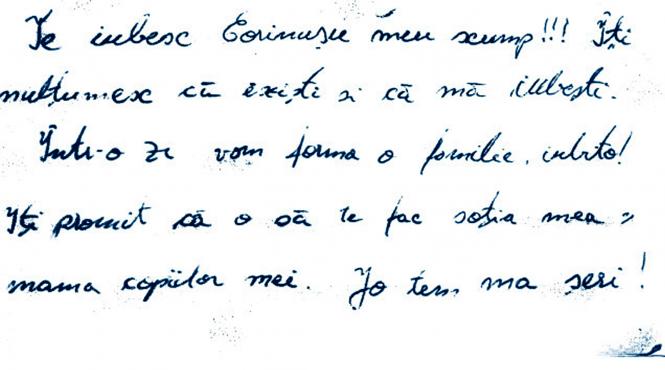 Te iubesc Corinușu meu scump!!! Îți
mulțumesc că exiști și că mă iubești.
Într-o zi vom forma o familie, iubito!
Îți promit că o să te fac soția mea și
mama copiilor mei. Jo tem ma seri!